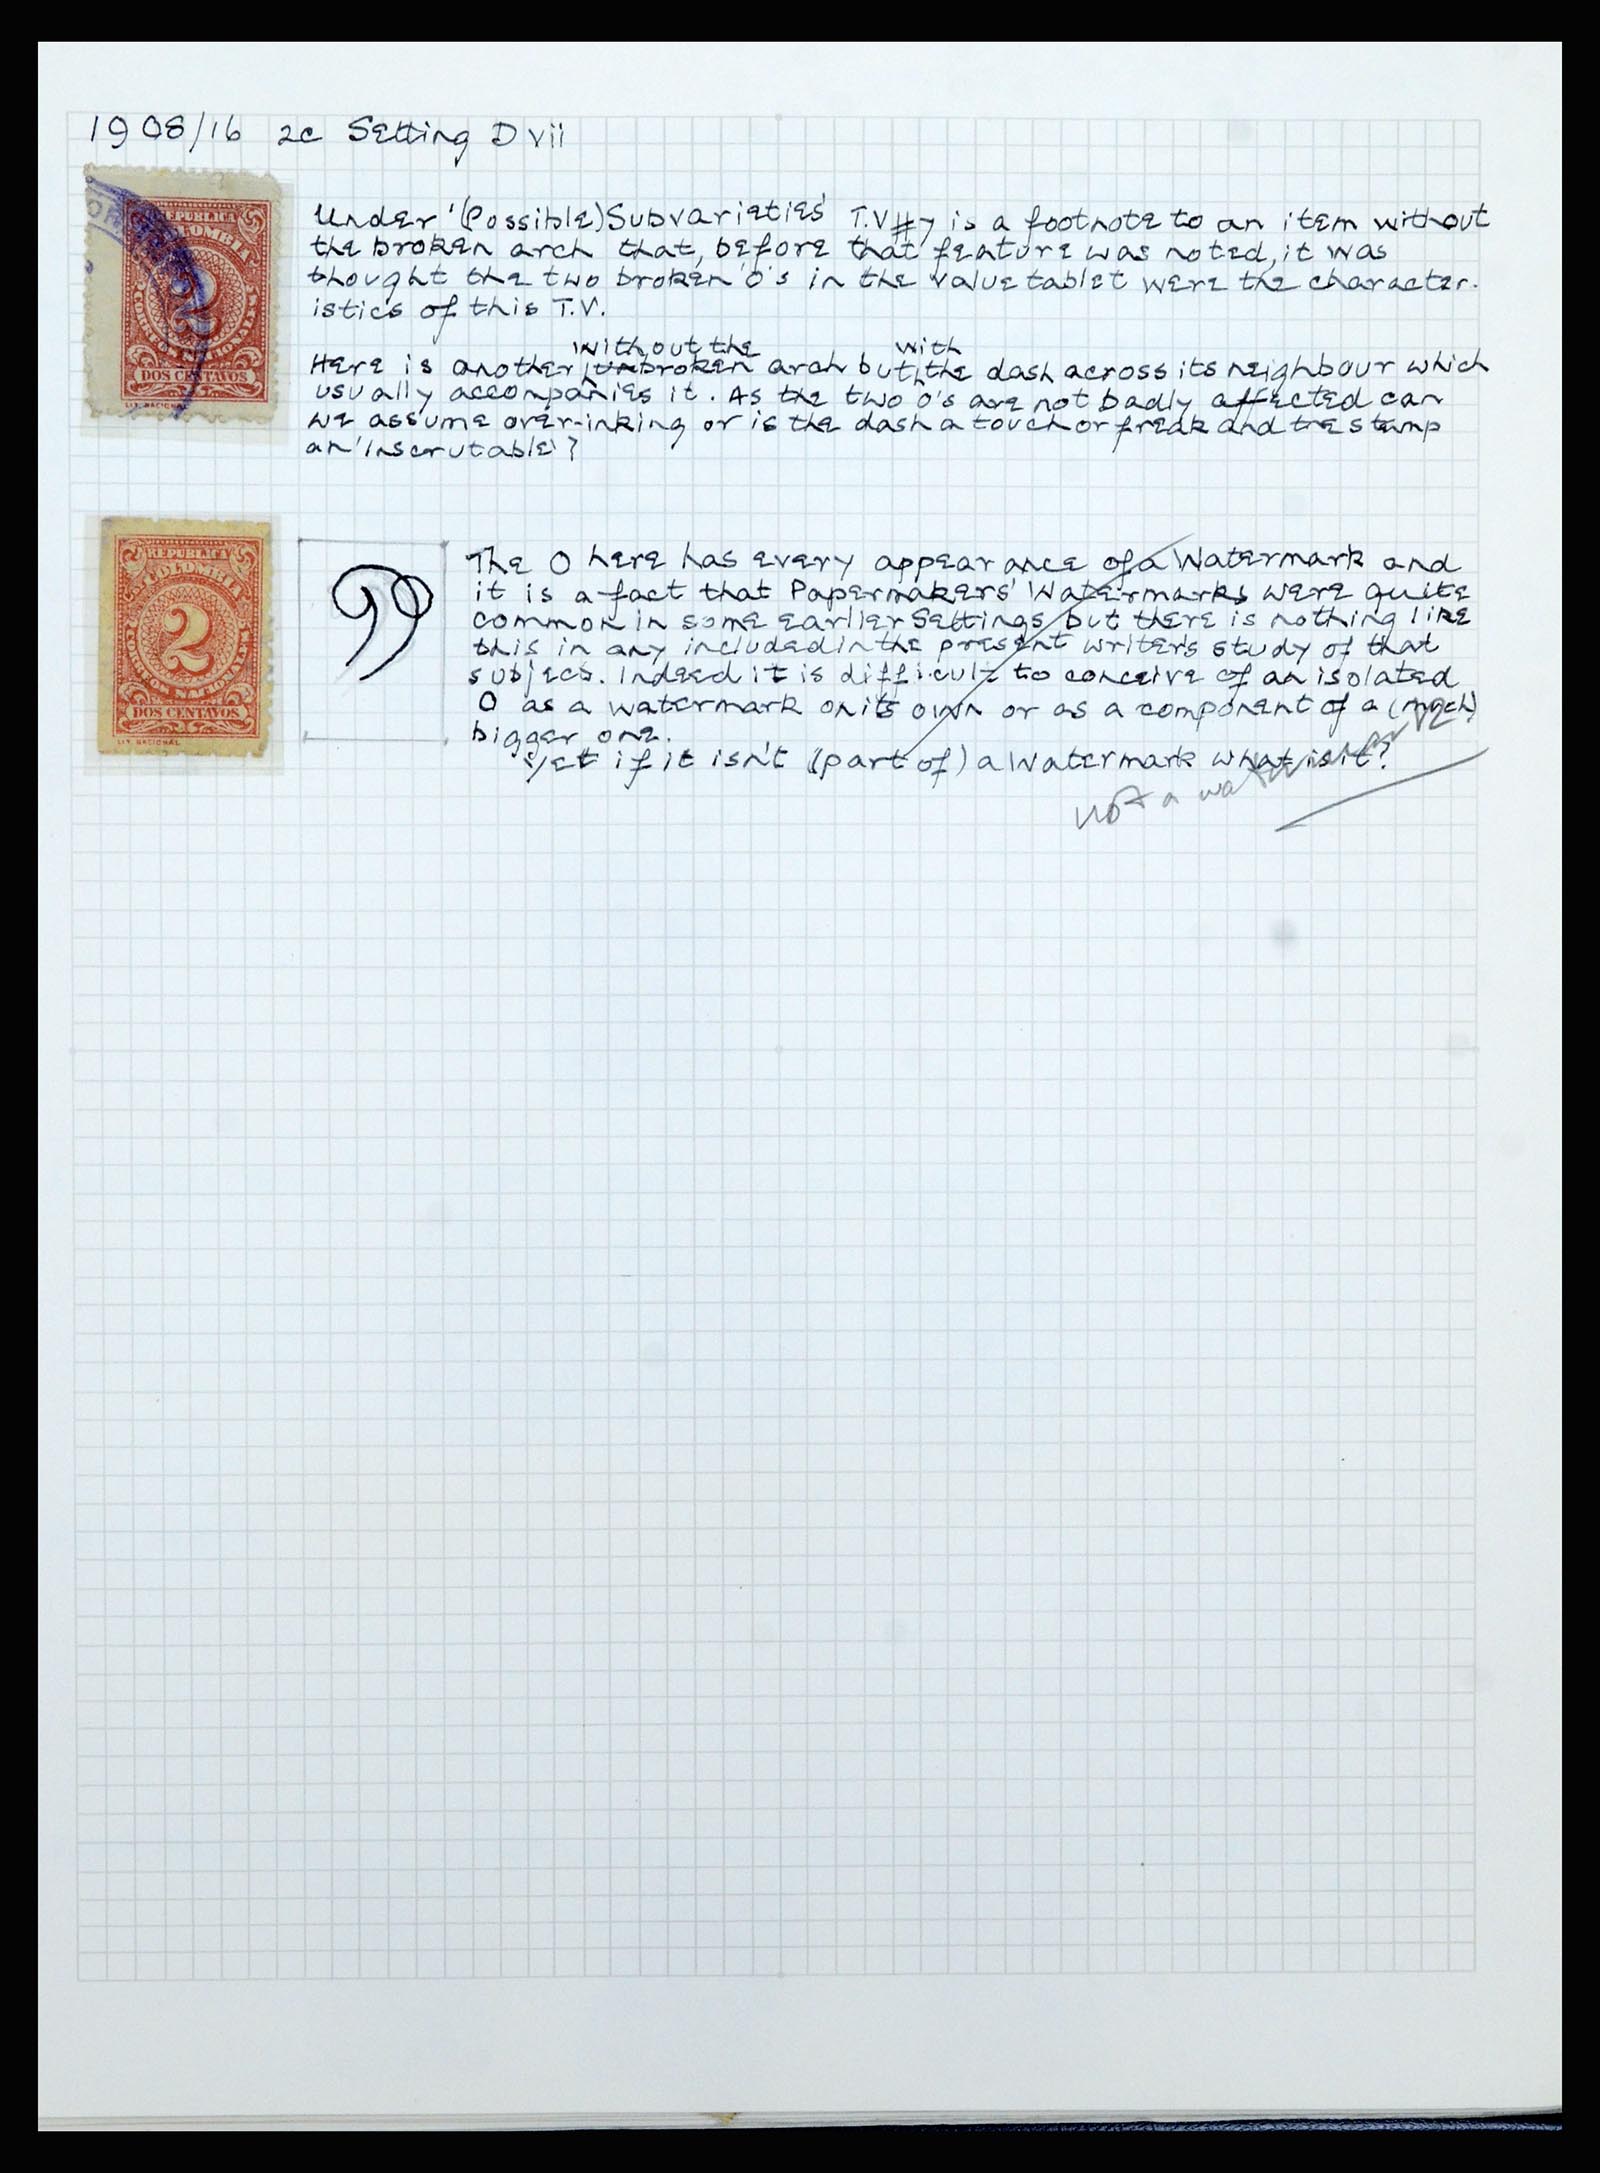 1908/16 2c Setting D vii
REPUBLICA
COLOMBIA
2
CORREOS NACIONALES
DOS CENTAVOS
LIT. NACIONAL
Under '(Possible) Subvarieties' T.V #7 is a footnote to an item without
the broken arch that, before that feature was noted, it was
thought the two broken 'O's in the value tablet were the character-
istics of this T.V.
without the with
Here is another unbroken arch but the dash across its neighbour which
usually accompanies it. As the two o's are not badly affected can
we assume over-inking or is the dash a touch or freak and the stamp
an 'Inscrutable'?
REPUBLICA
COLOMBIA
2
CORREOS NACIONALES
DOS CENTAVOS
LIT. NACIONAL
The O here has every appearance of a Watermark and
it is a fact that Papermakers' Watermarks were quite
common in some earlier Settings but there is nothing like
this in any included in the present writer's study of that
subject. Indeed it is difficult to conceive of an isolated
O as a watermark on its own or as a component of a (much)
bigger one.
Yet if it isn't (part of) a Watermark what is it?
not a watermark